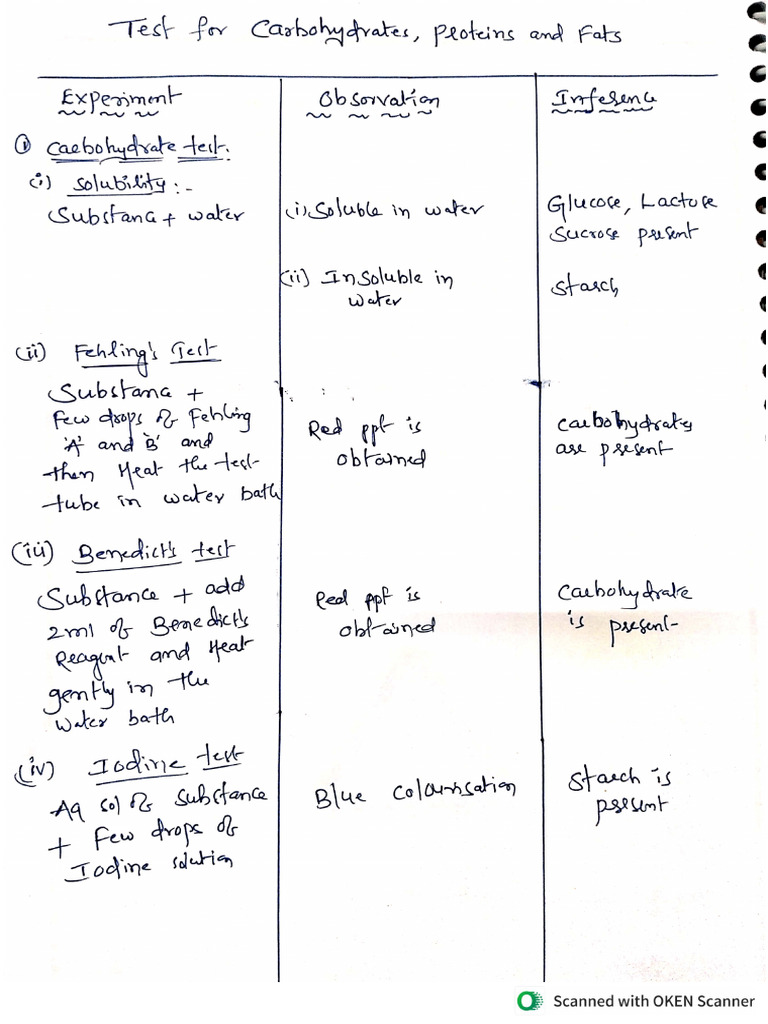 Test for Carbohydrates, Proteins and Fats
Experiment
Obsorvation
Inference
① Carbohydrate test:
(i) Solubility:-
Substance + water
(i) Soluble in water
Glucose, Lactose
Sucrose present
(ii) Insoluble in
water
Starch
(ii) Fehling's Test
Substance +
Few drops of Fehling
'A' and 'B' and
then Heat the test
tube in water bath
Red ppt is
obtained
carbohydrates
are present
(iii) Benedict's test
Substance + add
2ml of Benedict's
Reagent and Heat
gently in the
water bath
Red ppt is
obtained
Carbohydrate
is present
(iv) Iodine test
Aq sol of substance
+ Few drops of
Iodine solution
Blue colourisation
Starch is
present
Scanned with OKEN Scanner